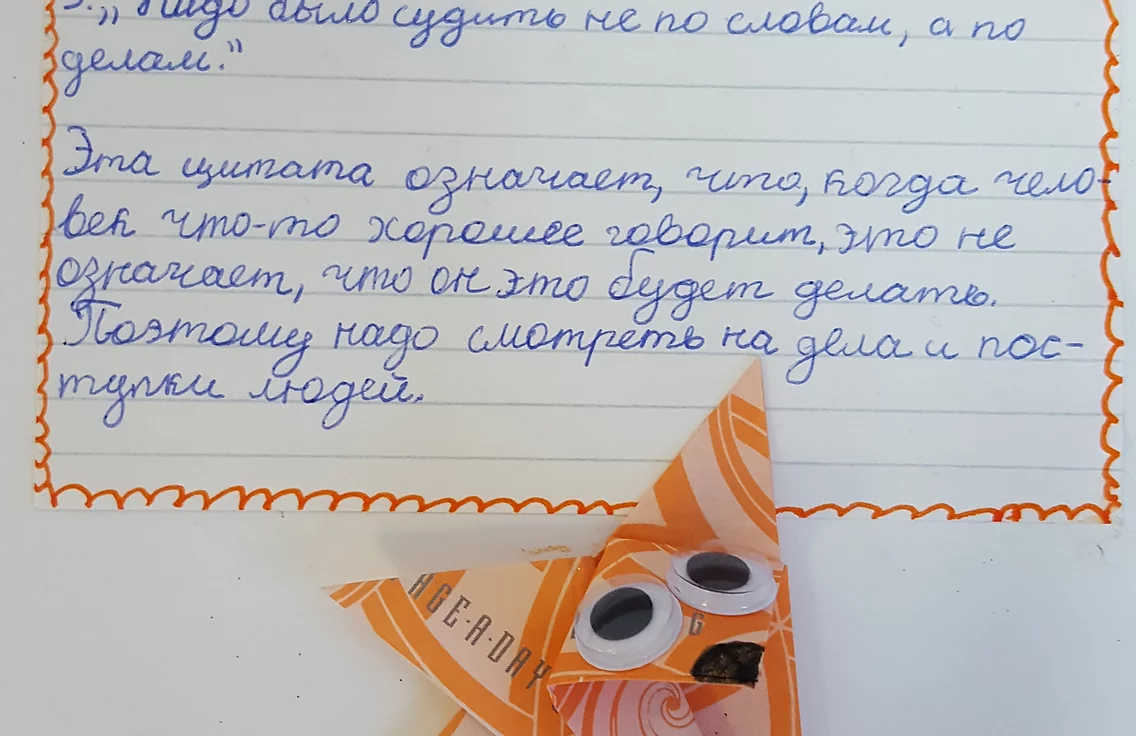 3. „Надо было судить не по словам, а по
делам.“
Эта цитата означает, что, когда чело-
век что-то хорошее говорит, это не
означает, что он это будет делать.
Поэтому надо смотреть на дела и пос-
тупки людей.
AGE·A·DAY
G